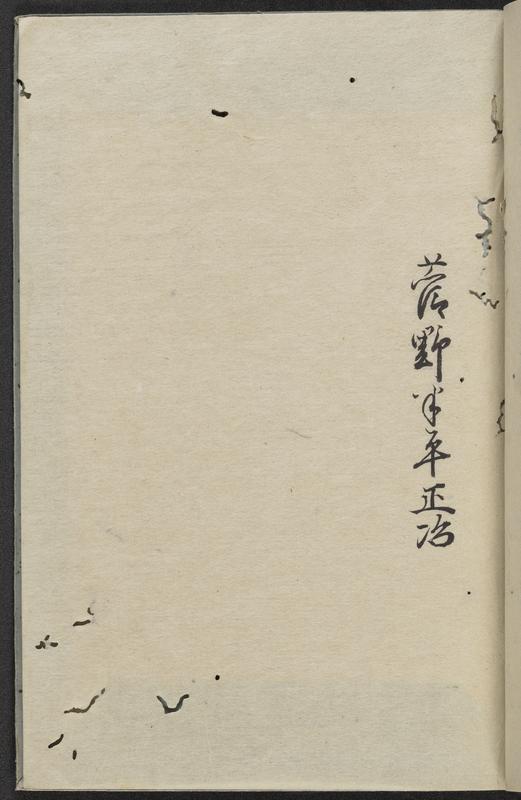 菅野半平正治